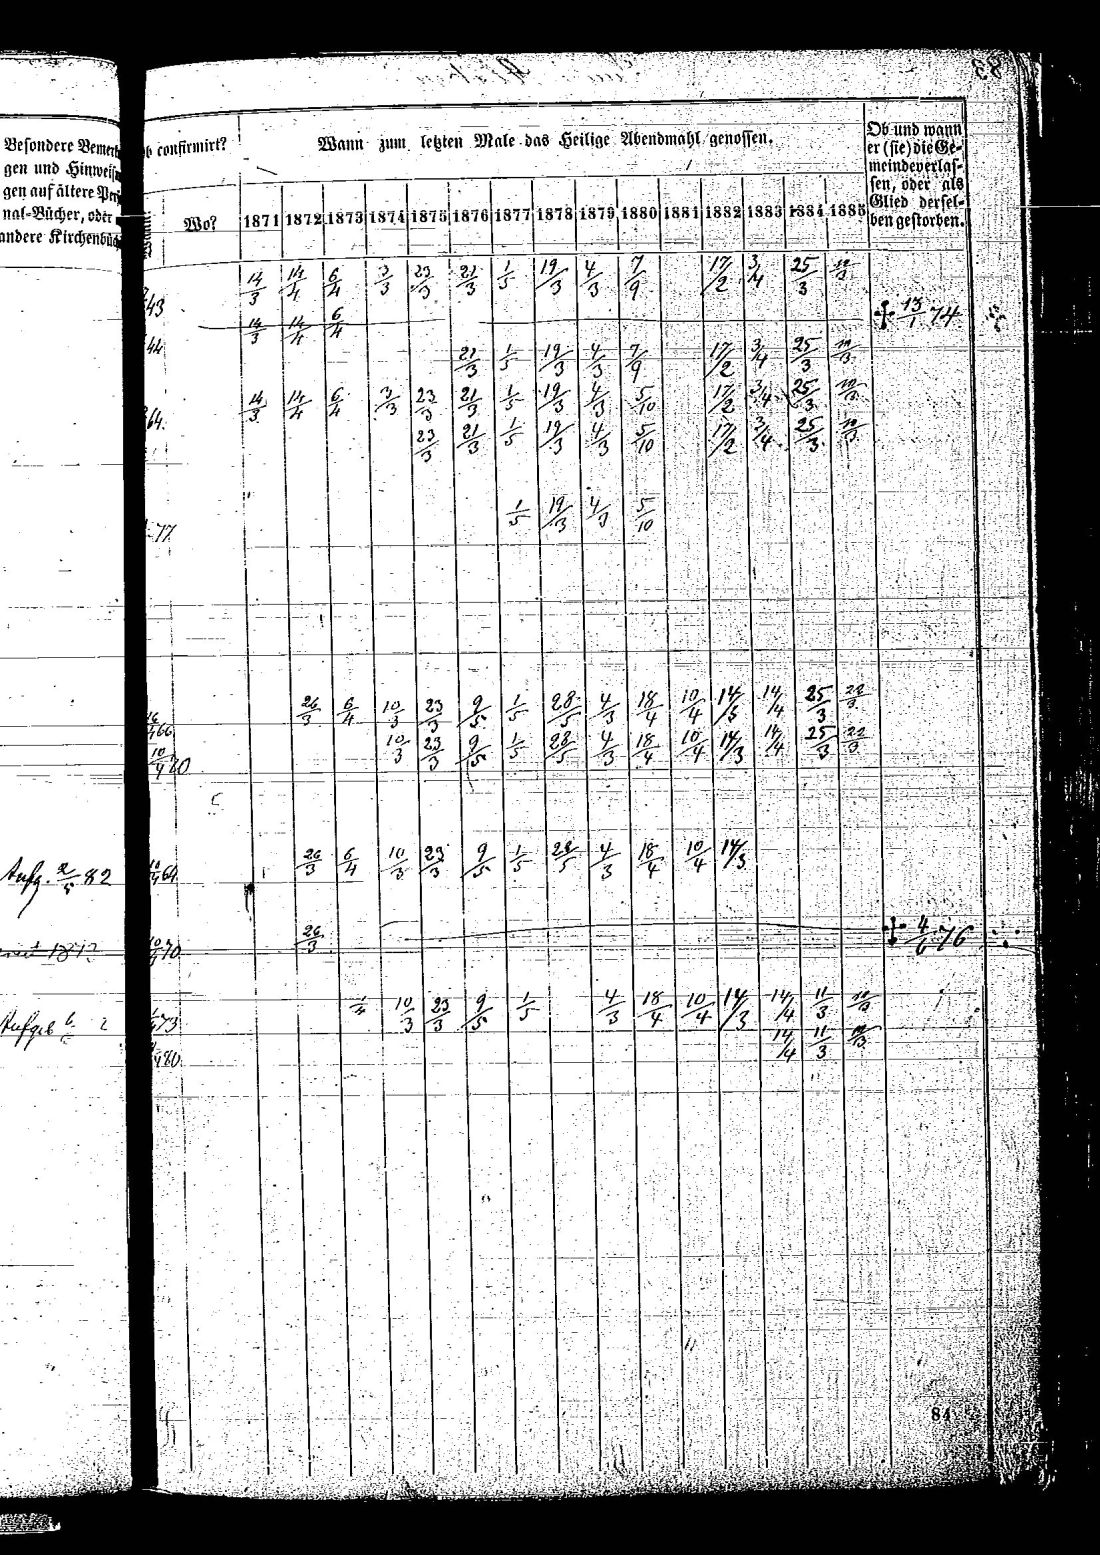 Besondere
gen und
gen auf ältere
nal-Bücher, oder
andere
confirmirt?
Wo?
Wann zum letzten Male das Heilige Abendmahl genossen.
1871 1872 1873 1874 1875 1876 1877 1878 1879 1880 1881 1882 1883 1884 1885
Ob und wann
er (sie) die Ge-
meinde verlas-
sen, oder als
Glied dersel-
ben gestorben.
43 14/3 14/4 6/4 3/3 23/3 21/3 1/5 19/3 4/3 7/9 17/2 3/4 25/3
14/3 14/4 6/4 † 13/1 74
44 21/3 1/5 19/3 4/3 7/9 17/2 3/4 25/3
64 14/3 14/4 6/4 3/3 23/3 21/3 1/5 19/3 4/3 5/10 17/2 3/4 25/3
23/3 21/3 1/5 19/3 4/3 5/10 17/2 3/4 25/3
77 1/5 19/3 4/3 5/10
66 26/3 6/4 10/3 23/3 9/5 1/5 28/5 4/3 18/4 10/4 14/3 14/4 25/3 22/3
10/4 70 10/3 23/3 9/5 1/5 28/5 4/3 18/4 10/4 14/3 14/4 25/3 22/3
Aufg. 2/5 82 64 26/3 6/4 10/3 23/3 9/5 1/5 28/5 4/3 18/4 10/4 14/3
70 26/3 † 4/6 76
73 10/3 23/3 9/5 1/5 4/3 18/4 10/4 14/3 14/4 11/3
80 14/4 11/3
84